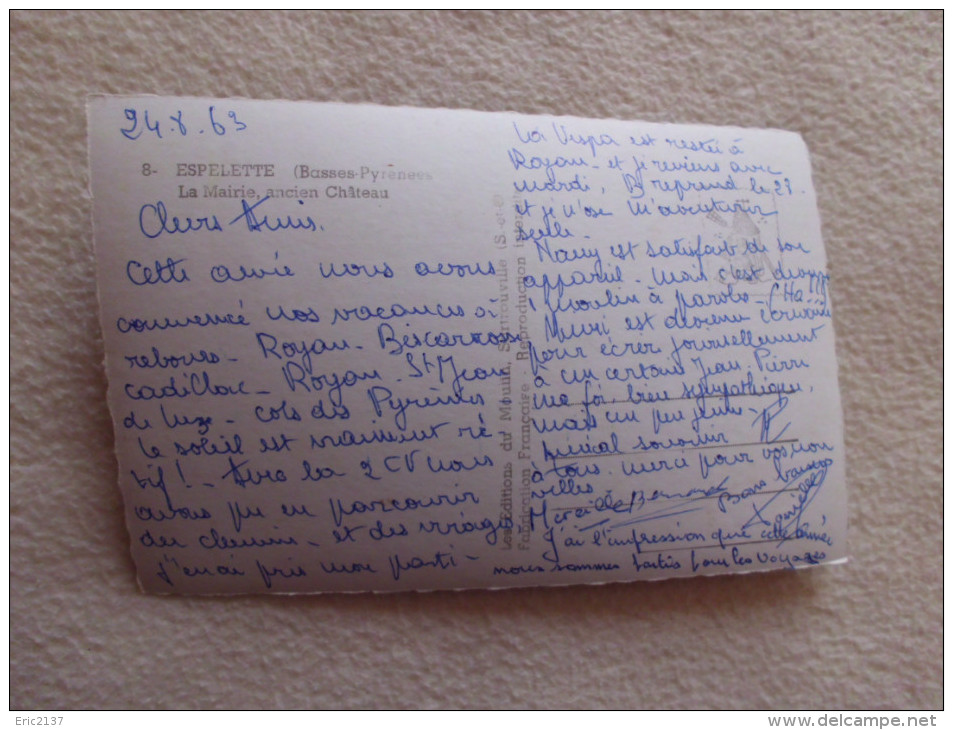 24.8.63
8- ESPELETTE (Basses-Pyrénées
La Mairie, ancien Château
Chers Amis.
Cette année nous avons
commencé nos vacances à
rebours - Royan - Biscarrosse
Cadillac - Royan. St Jean
de Luz - cols des Pyrénées
le soleil est vraiment ré
tif! - Avec la 2 CV nous
avons pu en parcourir
du chemin - et des virages
j'en ai pris mon parti -
La Vespa est restée à
Royan - et je reviens avec
mardi, B reprend le 27
et je n'ose m'aventurer
seule -
Nany est satisfait de son
appareil - mais c'est
moulin à paroles -
est devenue écrivain
pour écrer journellement
à un certain Jean. Pierre
ma foi, bien sympathique,
mais un peu jeune -
Amical souvenir
à tous. merci pour vos nou
velles -
Mireille Bernard
Bons baisers
J'ai l'impression que cette année
nous sommes partis pour les voyages
Les Editions du Mouлin, Sartrouville (S.-et-O
Fabrication Française - Reproduction Interdite
Eric2137
http://www.delcampe.net